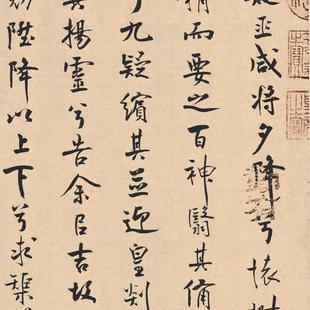 巫咸將夕降兮懷椒
糈而要之百神翳其備
兮九疑繽其並迎皇剡
其揚靈兮告余㠯吉故
勉陞降以上下兮求榘